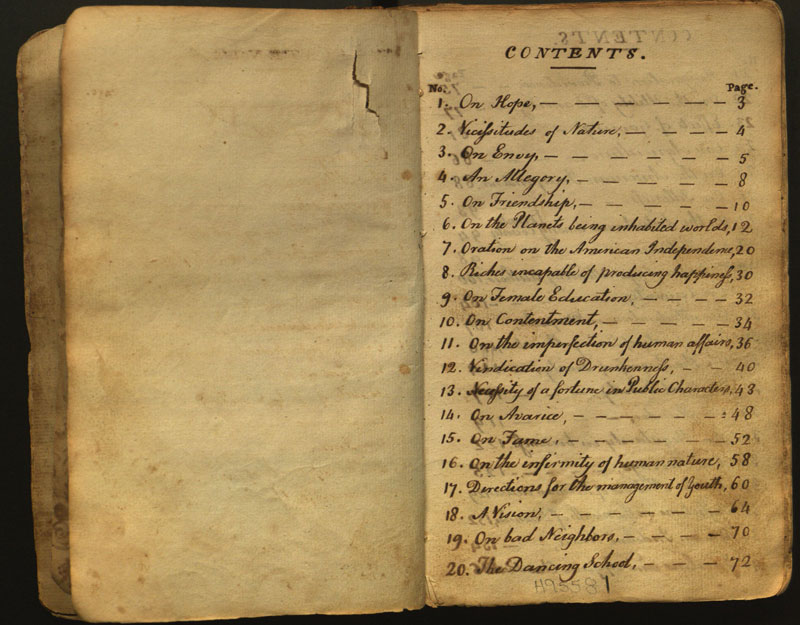 CONTENTS.
No. Page.
1. On Hope, — — — — — — 3
2. Vicissitudes of Nature, — — — — 4
3. On Envy, — — — — — — 5
4. An Allegory, — — — — — 8
5. On Friendship, — — — — — 10
6. On the Planets being inhabited worlds, 12
7. Oration on the American Independence, 20
8. Riches incapable of producing happiness, 30
9. On Female Education, — — — 32
10. On Contentment, — — — — — 34
11. On the imperfection of human affairs, 36
12. Vindication of Drunkenness, — — 40
13. Necessity of a fortune in Public Characters, 43
14. On Avarice, — — — — — — 48
15. On Fame, — — — — — — 52
16. On the infirmity of human nature, 58
17. Directions for the management of Youth, 60
18. A Vision, — — — — — — 64
19. On bad Neighbors, — — — — 70
20. The Dancing School, — — — 72